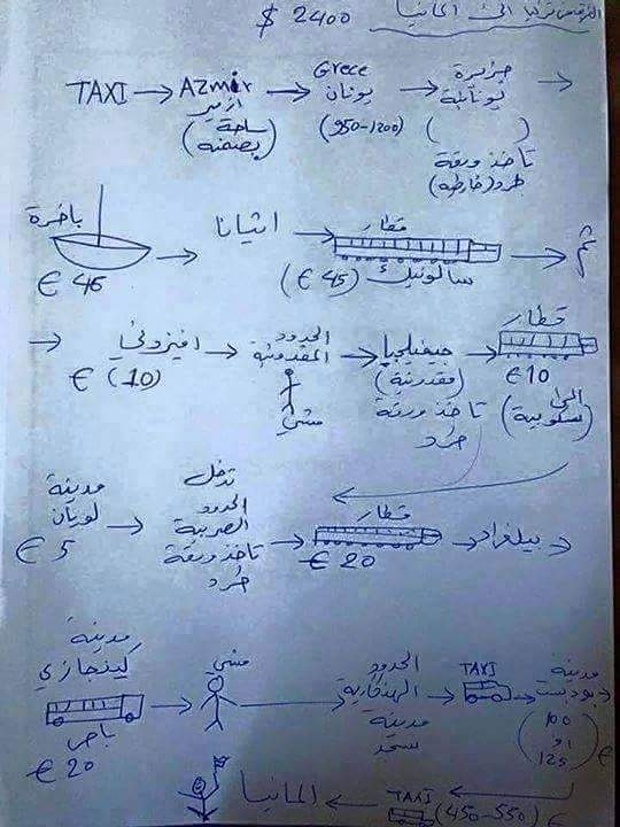 الى المانيا 2400 $
TAXI → Azmir → Grece → جزيرة →
ازمير يونان يونانية
(ساحة (950-1200) ( )
بصمنه) تاخذ ورقة
طرد (خارطه)
باخرة → اثيانا → قطار → ثم
€ 46 (€ 45) سالونيك
→ افيزوني → الحدود المقدونية → جيفيليجيا → قطار
€ (10) مشي (مقدونية) €10
تاخذ ورقة الى
طرد (سكوبية)
مدينة لويان → تدخل الحدود الصربية → قطار → بيلغراد
€ 5 تاخذ ورقة € 20
طرد
مدينة كينجازي → مشي → الحدود الهنغارية → TAXI → مدينة بودبست
باص مدينة (100
€ 20 سجد او
125) €
المانيا ← TAXI (450-550) €